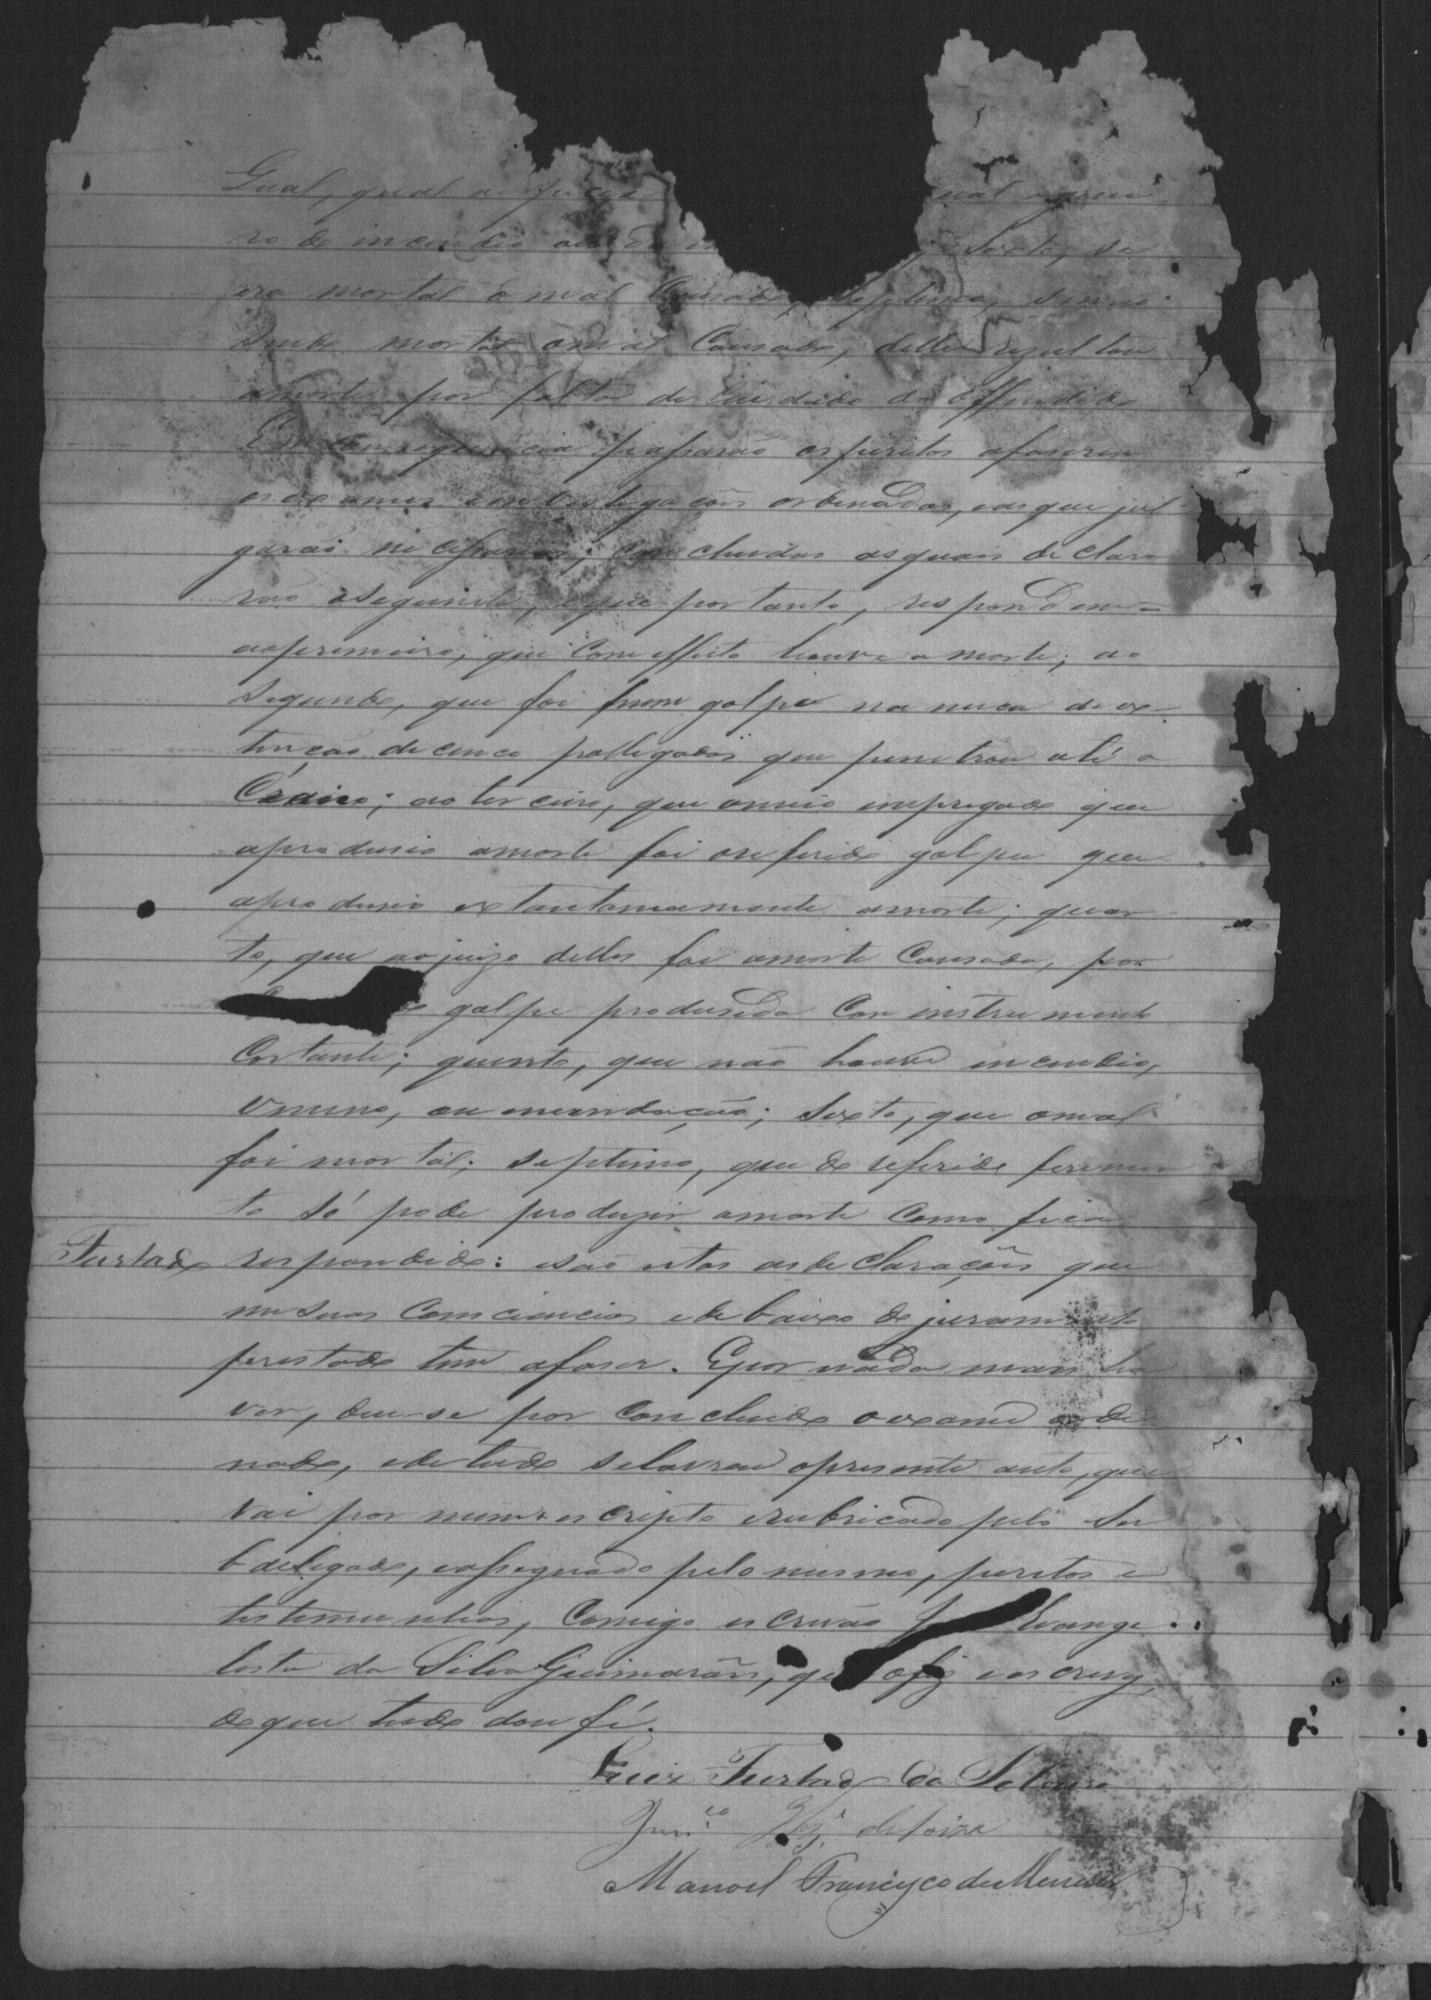 Qual, qual a especie
ro de incendio ou de in sexto, se
era mortal o mal Causado, Septimo, senão
sendo mortal o mal Causado, delle rezultou
amorte por falta de Cuidado do Offendido
Em Consequencia passarão os peritos afaserem
os exames einvestigações ordenadas, eas que jul
garão necessarias; Concluidas as quais declara
rão oseguinte, que portanto, respondem =
ao primeiro, que Com effeito houve a morte; ao
Segundo, que foi hum golpe na nuca de ex
tenção de cinco pollegadas que penetrou até o
Craneo; ao terceiro, que omeio empregado que
aprodusio amorte foi oreferido golpe que
aprodusio extantaniamente amorte; quar
to, que ao juizo delles foi amorte Causada, por
golpe produsido Com instrumento
Cortante; quinto, que não houve incendio,
Veneno, ou inundação; Sexto, que omal
foi mortal; Septimo, que do referido ferimen
to só pode produzir amorte Como fica
Furtado respondido: esão estas as declarações que
em Suas Consciencias edebaixo do juramento
prestado tem afaser. Epor nada mais ha
ver, deu-se por Concluido o exame orde
nado, ede tudo selavrou opresente auto, que
Vai por mim escripto erubricado pelo Su
bdelegado, eassignado pelo mesmo, peritos e
testemunhas, Comigo escrivão Evange
lista da Silva Guimarães, que ofiz eescrevy,
do que tudo dou fé.
Luiz Furtado da
de Souza
Manoel Francisco de Menezes